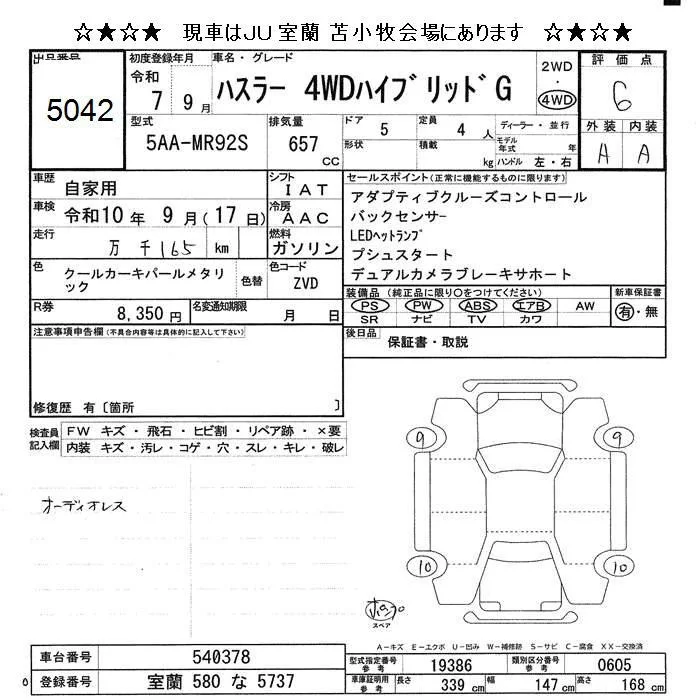 ☆★☆★ 現車はJU室蘭 苫小牧会場にあります ☆★☆★
出品番号
5042
初度登録年月
令和
7 9月
車名・グレード
ハスラー 4WDハイブリッドG
2WD
・
4WD
評価点
6
外装 内装
A A
型式
5AA-MR92S
排気量
657
CC
ドア
5
定員
4 人
ディーラー・並行
モデル
年式 年
形状
積載
kg
ハンドル 左・右
車歴
自家用
シフト
IAT
車検
令和10年 9月(17日)
冷房
AAC
走行
万 千165 km
燃料
ガソリン
色
クールカーキパールメタリ
ック
色替
色コード
ZVD
R券
8,350円
名変通知期限
月 日
セールスポイント(正常に機能するものに限ります)
アダプティブクルーズコントロール
バックセンサー
LEDヘットランプ
プシュスタート
デュアルカメラブレーキサホート
装備品 (純正品に限り〇をつけてください)
PS PW ABS エアB AW
SR ナビ TV カワ
新車保証書
有・無
後日品
保証書・取説
注意事項申告欄(不具合内容等は具体的に記入して下さい)
修復歴 有〔箇所 〕
検査員
記入欄
FW キズ ・ 飛石 ・ ヒビ割 ・ リペア跡 ・ ×要
内装 キズ・汚レ・コゲ・穴・スレ・キレ・破レ
オーディオレス
9 9
10 10
スペア
A-キズ E-エクボ U-凹み W-補修跡 S-サビ C-腐食 XX-交換済
車台番号
540378
登録番号
室蘭 580 な 5737
型式指定番号
参考
19386
類別区分番号
参考
0605
車庫証明用
参考
長さ
339 cm
幅
147 cm
高さ
168 cm